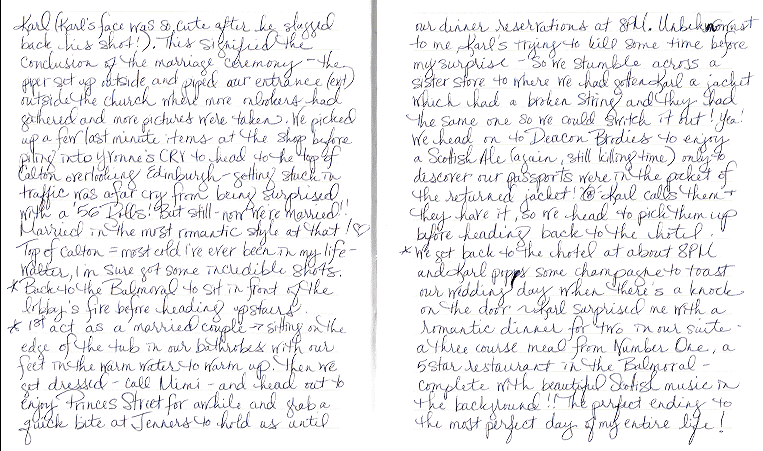 Karl (Karl's face was so cute after he slugged
back his shot!). This signified the
conclusion of the marriage ceremony - the
piper set up outside and piped our entrance (ext)
outside the church where more onlookers had
gathered and more pictures were taken. We picked
up a few last minute items at the shop before
piling into Yvonne's CRV to head to the top of
Calton overlooking Edinburgh - getting stuck in
traffic was a far cry from being surprised
with a '56 Rolls! But still - now we're married!!
Married in the most romantic style at that! ♡
Top of Calton = most cold I've ever been in my life -
Walter, I'm sure got some incredible shots.
* Back to the Balmoral to sit in front of the
lobby's fire before heading upstairs.
* 1st act as a married couple → sitting on the
edge of the tub in our bathrobes with our
feet in the warm water to warm up. Then we
get dressed - call Mimi - and head out to
enjoy Princes Street for awhile and grab a
quick bite at Jenners to hold us until
our dinner reservations at 8PM. Unbeknownst
to me Karl's trying to kill some time before
my surprise - so we stumble across a
sister store to where we had gotten Karl a jacket
which had a broken string and they had
the same one so we could switch it out! Yea!
We head on to Deacon Brodies to enjoy
a Scottish Ale (again, still killing time) only to
descover our passports were in the pocket of
the returned jacket! Karl calls them +
they have it, so we head to pick them up
before heading back to the hotel.
* We get back to the hotel at about 8PM
and Karl pops some champagne to toast
our wedding day when there's a knock
on the door - Karl surprised me with a
romantic dinner for two in our suite -
a three course meal from Number One, a
5 star restaurant in the Balmoral -
complete with beautiful Scottish music in
the background!! The perfect ending to
the most perfect day of my entire life!